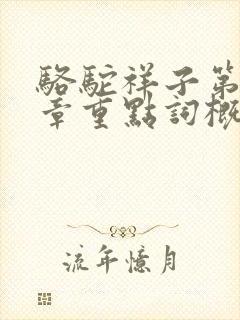 駱駝祥子第
章重點詞概
流年憶月